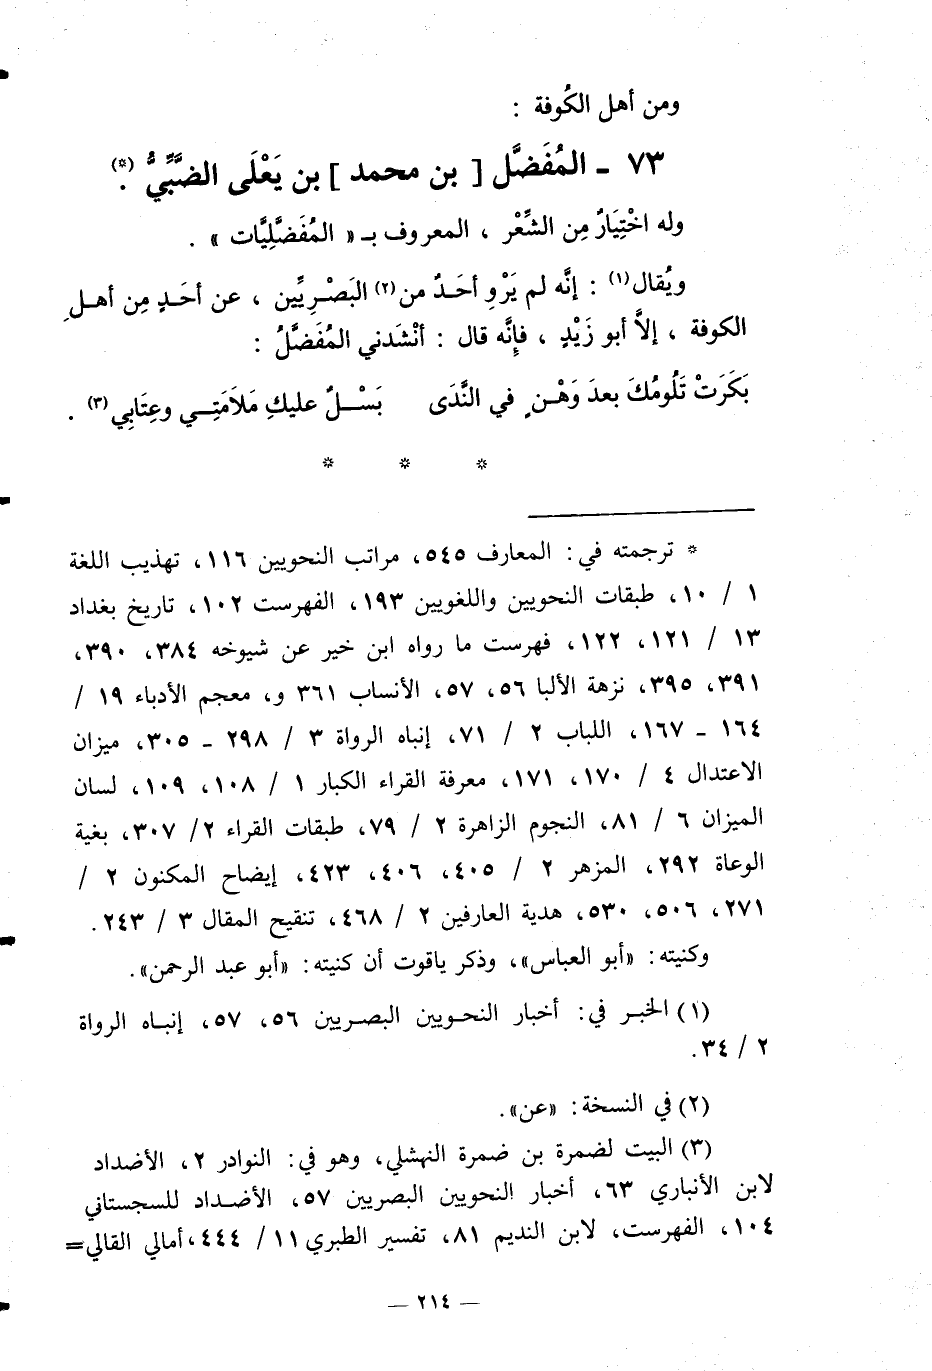 ومن أهل الكُوفة :
٧٣ ـ المُفَضَّل [ بن محمد ] بن يَعْلَى الضَّبِّيُّ (*) .
وله اخْتِيَارٌ مِن الشِّعْر ، المعروف بـ « المُفَضَّلِيَّات » .
ويُقال(١) : إنَّه لم يَرْوِ أحَدٌ من(٢) البَصْرِيِّين ، عن أحَدٍ مِن أهلِ
الكوفة ، إلاَّ أبو زَيْدٍ ، فإنَّه قال : أنْشَدني المُفَضَّلُ :
بَكَرَتْ تَلُومُكَ بعدَ وَهْنٍ في النَّدَى بَسْلٌ عليكِ مَلاَمَتِي وعِتَابِي(٣) .
* * *
* ترجمته في: المعارف ٥٤٥، مراتب النحويين ١١٦، تهذيب اللغة
١ / ١٠، طبقات النحويين واللغويين ١٩٣، الفهرست ١٠٢، تاريخ بغداد
١٣ / ١٢١، ١٢٢، فهرست ما رواه ابن خير عن شيوخه ٣٨٤، ٣٩٠،
٣٩١، ٣٩٥، نزهة الألبا ٥٦، ٥٧، الأنساب ٣٦١ و، معجم الأدباء ١٩ /
١٦٤ ـ ١٦٧، اللباب ٢ / ٧١، إنباه الرواة ٣ / ٢٩٨ ـ ٣٠٥، ميزان
الاعتدال ٤ / ١٧٠، ١٧١، معرفة القراء الكبار ١ / ١٠٨، ١٠٩، لسان
الميزان ٦ / ٨١، النجوم الزاهرة ٢ / ٧٩، طبقات القراء ٢/ ٣٠٧، بغية
الوعاة ٢٩٢، المزهر ٢ / ٤٠٥، ٤٠٦، ٤٢٣، إيضاح المكنون ٢ /
٢٧١، ٥٠٦، ٥٣٠، هدية العارفين ٢ / ٤٦٨، تنقيح المقال ٣ / ٢٤٣.
وكنيته: «أبو العباس»، وذكر ياقوت أن كنيته: «أبو عبد الرحمن».
(١) الخبر في: أخبار النحويين البصريين ٥٦، ٥٧، إنباه الرواة
٢ / ٣٤.
(٢) في النسخة: «عن».
(٣) البيت لضمرة بن ضمرة النهشلي، وهو في: النوادر ٢، الأضداد
لابن الأنباري ٦٣، أخبار النحويين البصريين ٥٧، الأضداد للسجستاني
١٠٤، الفهرست، لابن النديم ٨١، تفسير الطبري ١١ / ٤٤٤، أمالي القالي=
— ٢١٤ —